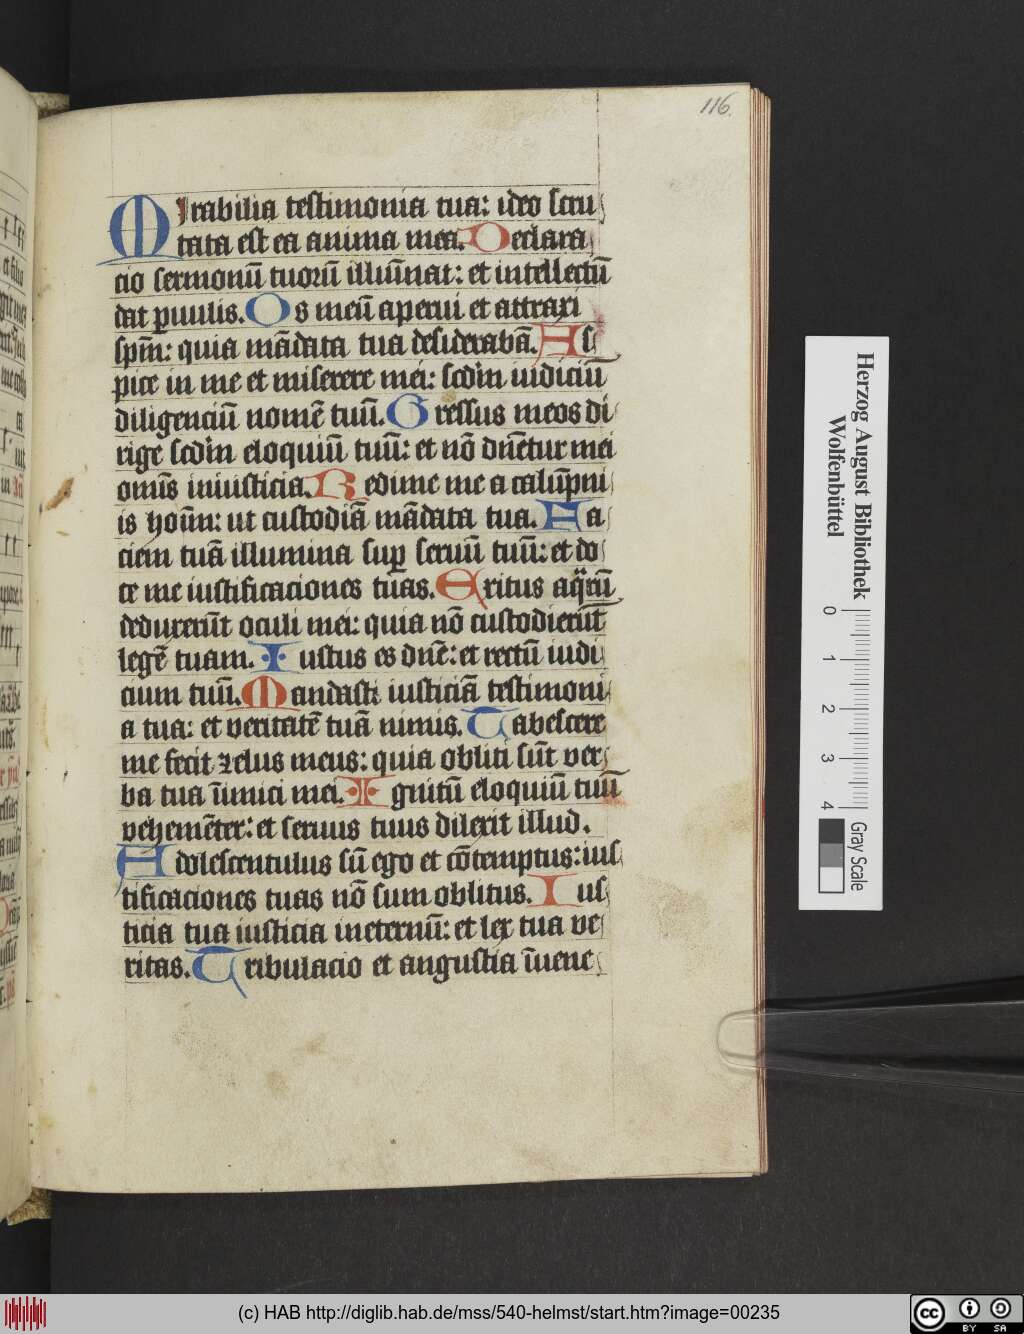 116.
MIrabilia testimonia tua: ideo scru
tata est ea anima mea. Declara
cio sermonū tuorū illuīnat: et intellectū
dat puulis. Os meū aperui et attraxi
spm̄: quia mādata tua desiderabā. As
pice in me et miserere mei: scdm iudiciū
diligenciū nomē tuū. Gressus meos di
rige scdm eloquiū tuū: et nō dn̄etur mei
omīs iniusticia. Redime me a calūpni
is hoīm: ut custodiā mādata tua. Fa
ciem tuā illumina sup seruū tuū: et do
ce me iustificaciones tuas. Exitus aq̄rū
deduxerūt oculi mei: quia nō custodierūt
legē tuam. Iustus es dn̄e: et rectū iudi
cium tuū. Mandasti iusticiā testimoni
a tua: et veritatē tuā nimis. Tabescere
me fecit zelus meus: quia obliti sūt ver
ba tua īimici mei. Ignitū eloquiū tuū
vehemēter: et seruus tuus dilexit illud.
Adolescentulus sū ego et cōtemptus: ius
tificaciones tuas nō sum oblitus. Ius
ticia tua iusticia ineternū: et lex tua ve
ritas. Tribulacio et angustia īuene
Herzog August Bibliothek
Wolfenbüttel
0 1 2 3 4
Gray Scale
(c) HAB http://diglib.hab.de/mss/540-helmst/start.htm?image=00235
cc BY SA